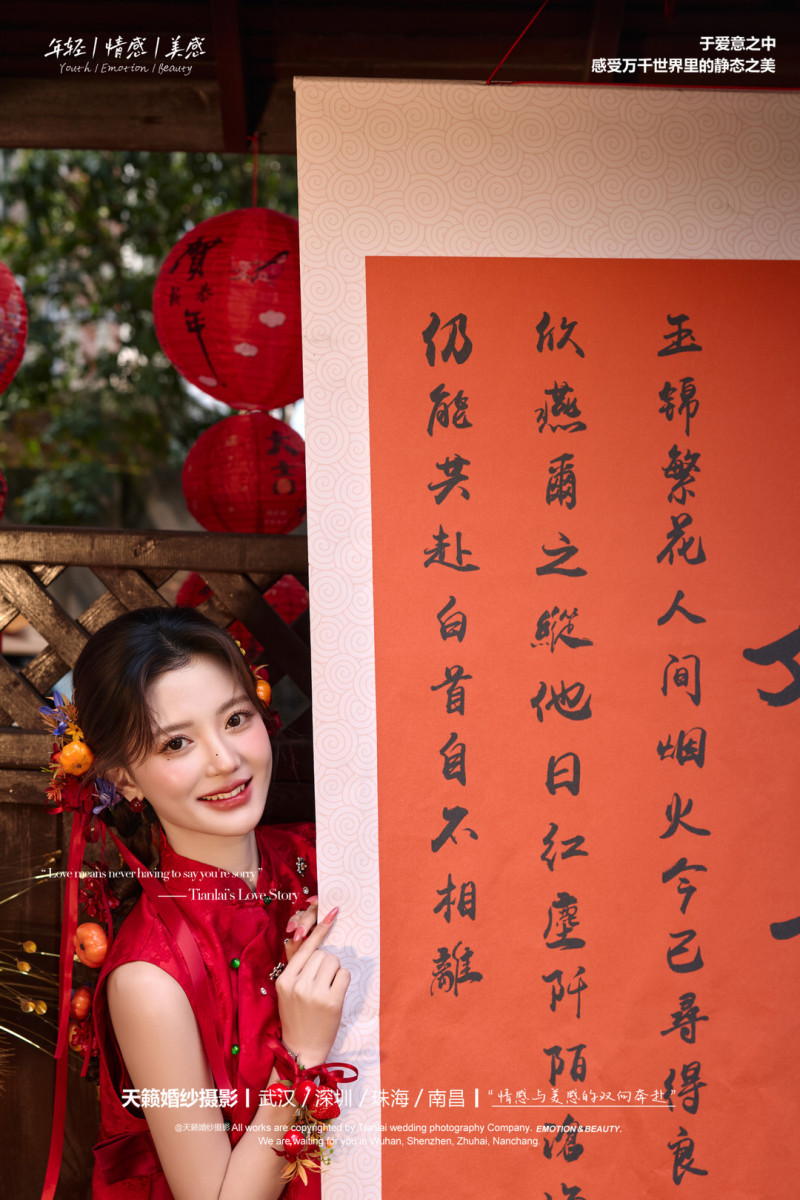 年轻 | 情感 | 美感
Youth / Emotion / Beauty
于爱意之中
感受万千世界里的静态之美
賀
恭
年
大吉
玉錦繁花人间烟火今已尋得良
欣燕爾之縱他日红塵阡陌滄
仍能共赴白首自不相離
“Love means never having to say you're sorry”
—— Tianlai's Love Story
天籁婚纱摄影 | 武汉 / 深圳 / 珠海 / 南昌 | “情感与美感的双向奔赴”
@天籁婚纱摄影 All works are copyrighted by Tianlai wedding photography Company. EMOTION & BEAUTY.
We are waiting for you in Wuhan, Shenzhen, Zhuhai, Nanchang.